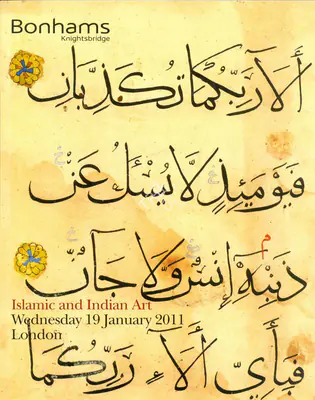 Bonhams
Knightsbridge
ألاء ربكما تكذبان
فيومئذ لا يسئل عن
ذنبه إنس ولا جان
Islamic and Indian Art
Wednesday 19 January 2011
London
فبأي ألاء ربكما